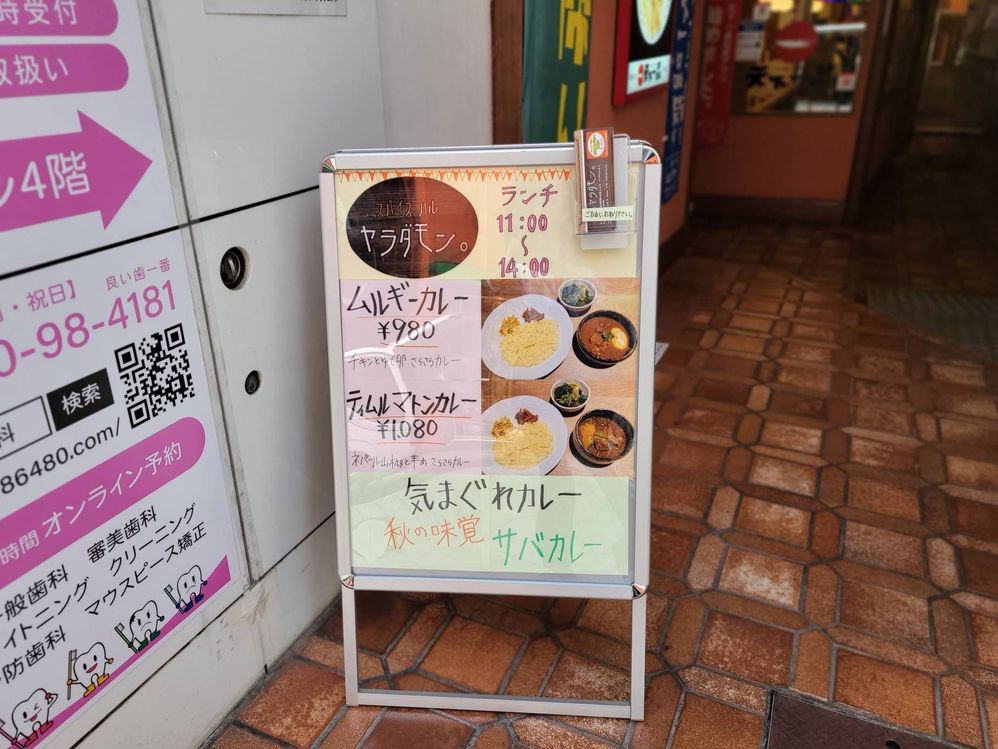 時受付
取扱い
ン4階
・祝日】
良い歯一番
0-98-4181
検索
科
86480.com/
時間 オンライン予約
審美歯科
クリーニング
マウスピース矯正
般歯科
イトニング
防歯科
スパイスバル
ヤラダモン。
ランチ
11:00
~
14:00
ヤラダモン。
ご自由にお取り下さい。
ムルギーカレー
¥980
チキンとゆで卵 さらさらカレー
ティムルマトンカレー
¥1,080
ネパール山椒と羊肉 さらさらカレー
気まぐれカレー
秋の味覚
サバカレー